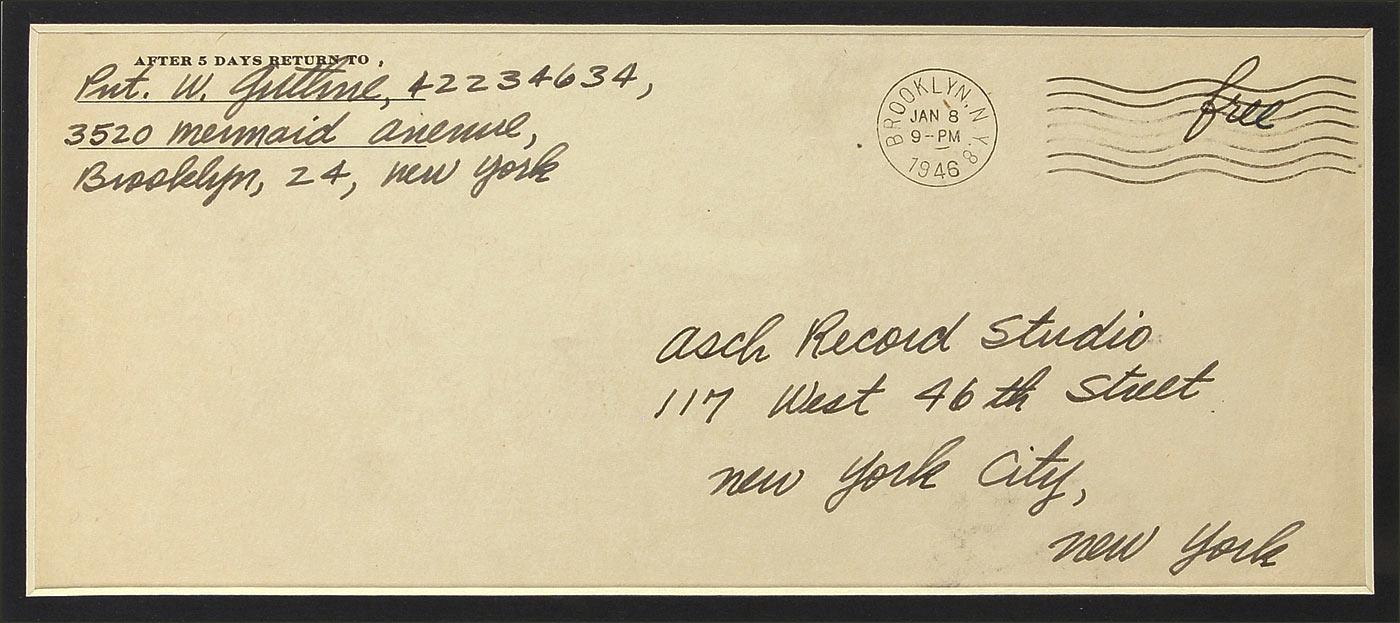 AFTER 5 DAYS RETURN TO
Pvt. W. Guthrie, 42234634,
3520 mermaid avenue,
Brooklyn, 24, new york
BROOKLYN, N.Y. 8
JAN 8
9-PM
1946
free
asch Record Studio
117 West 46th Street
new york City,
new york